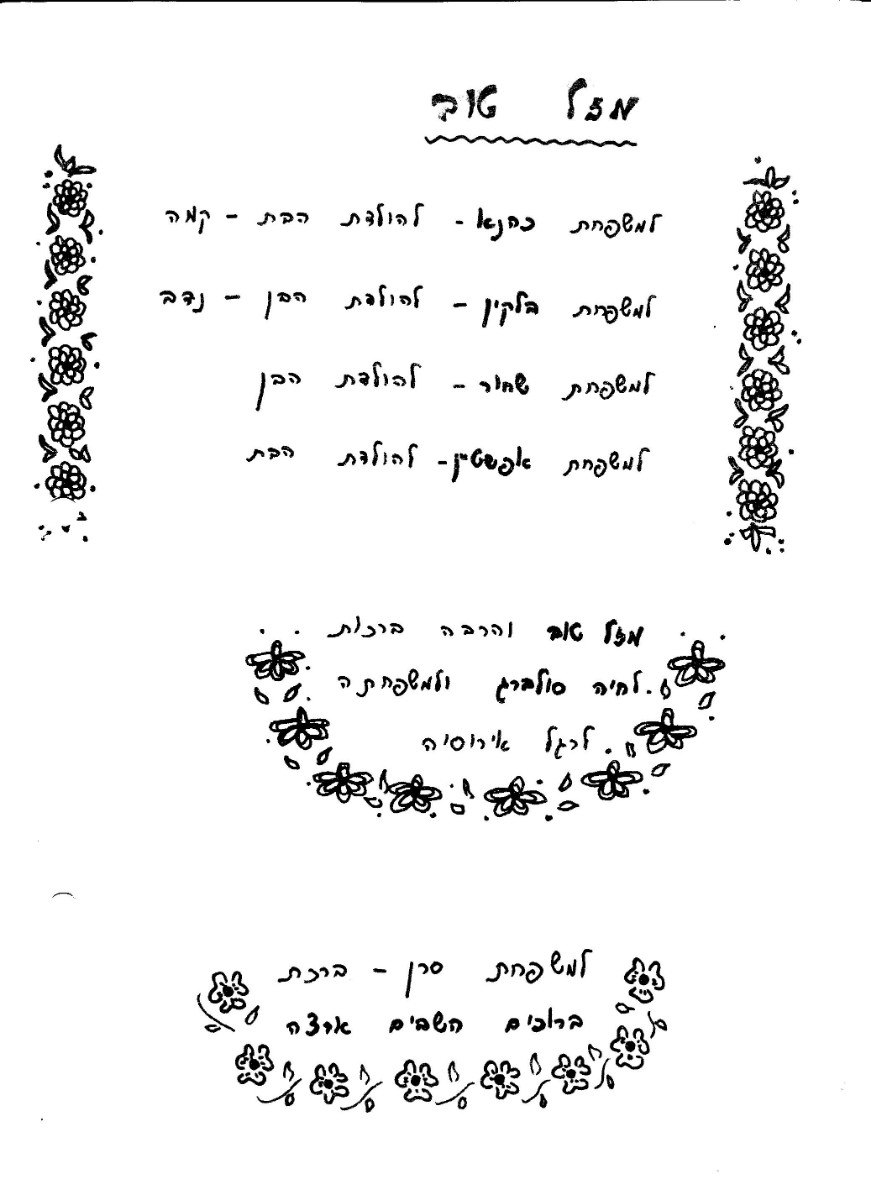 מזל טוב
למשפחת כהנא - להולדת הבת - קמה
למשפחת בלקין - להולדת הבן - נדב
למשפחת שחור - להולדת הבן
למשפחת אפשטיין - להולדת הבת
מזל טוב והרבה ברכות
לחיה סולברג ולמשפחתה
לרגל אירוסיה.
למשפחת סרן - ברכת
ברוכים השבים ארצה